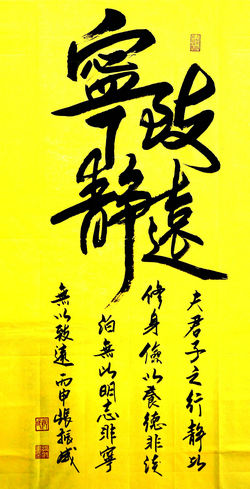 寧靜
致遠
夫君子之行靜以
修身儉以養德非淡
泊無以明志非寧
無以致遠丙申張振